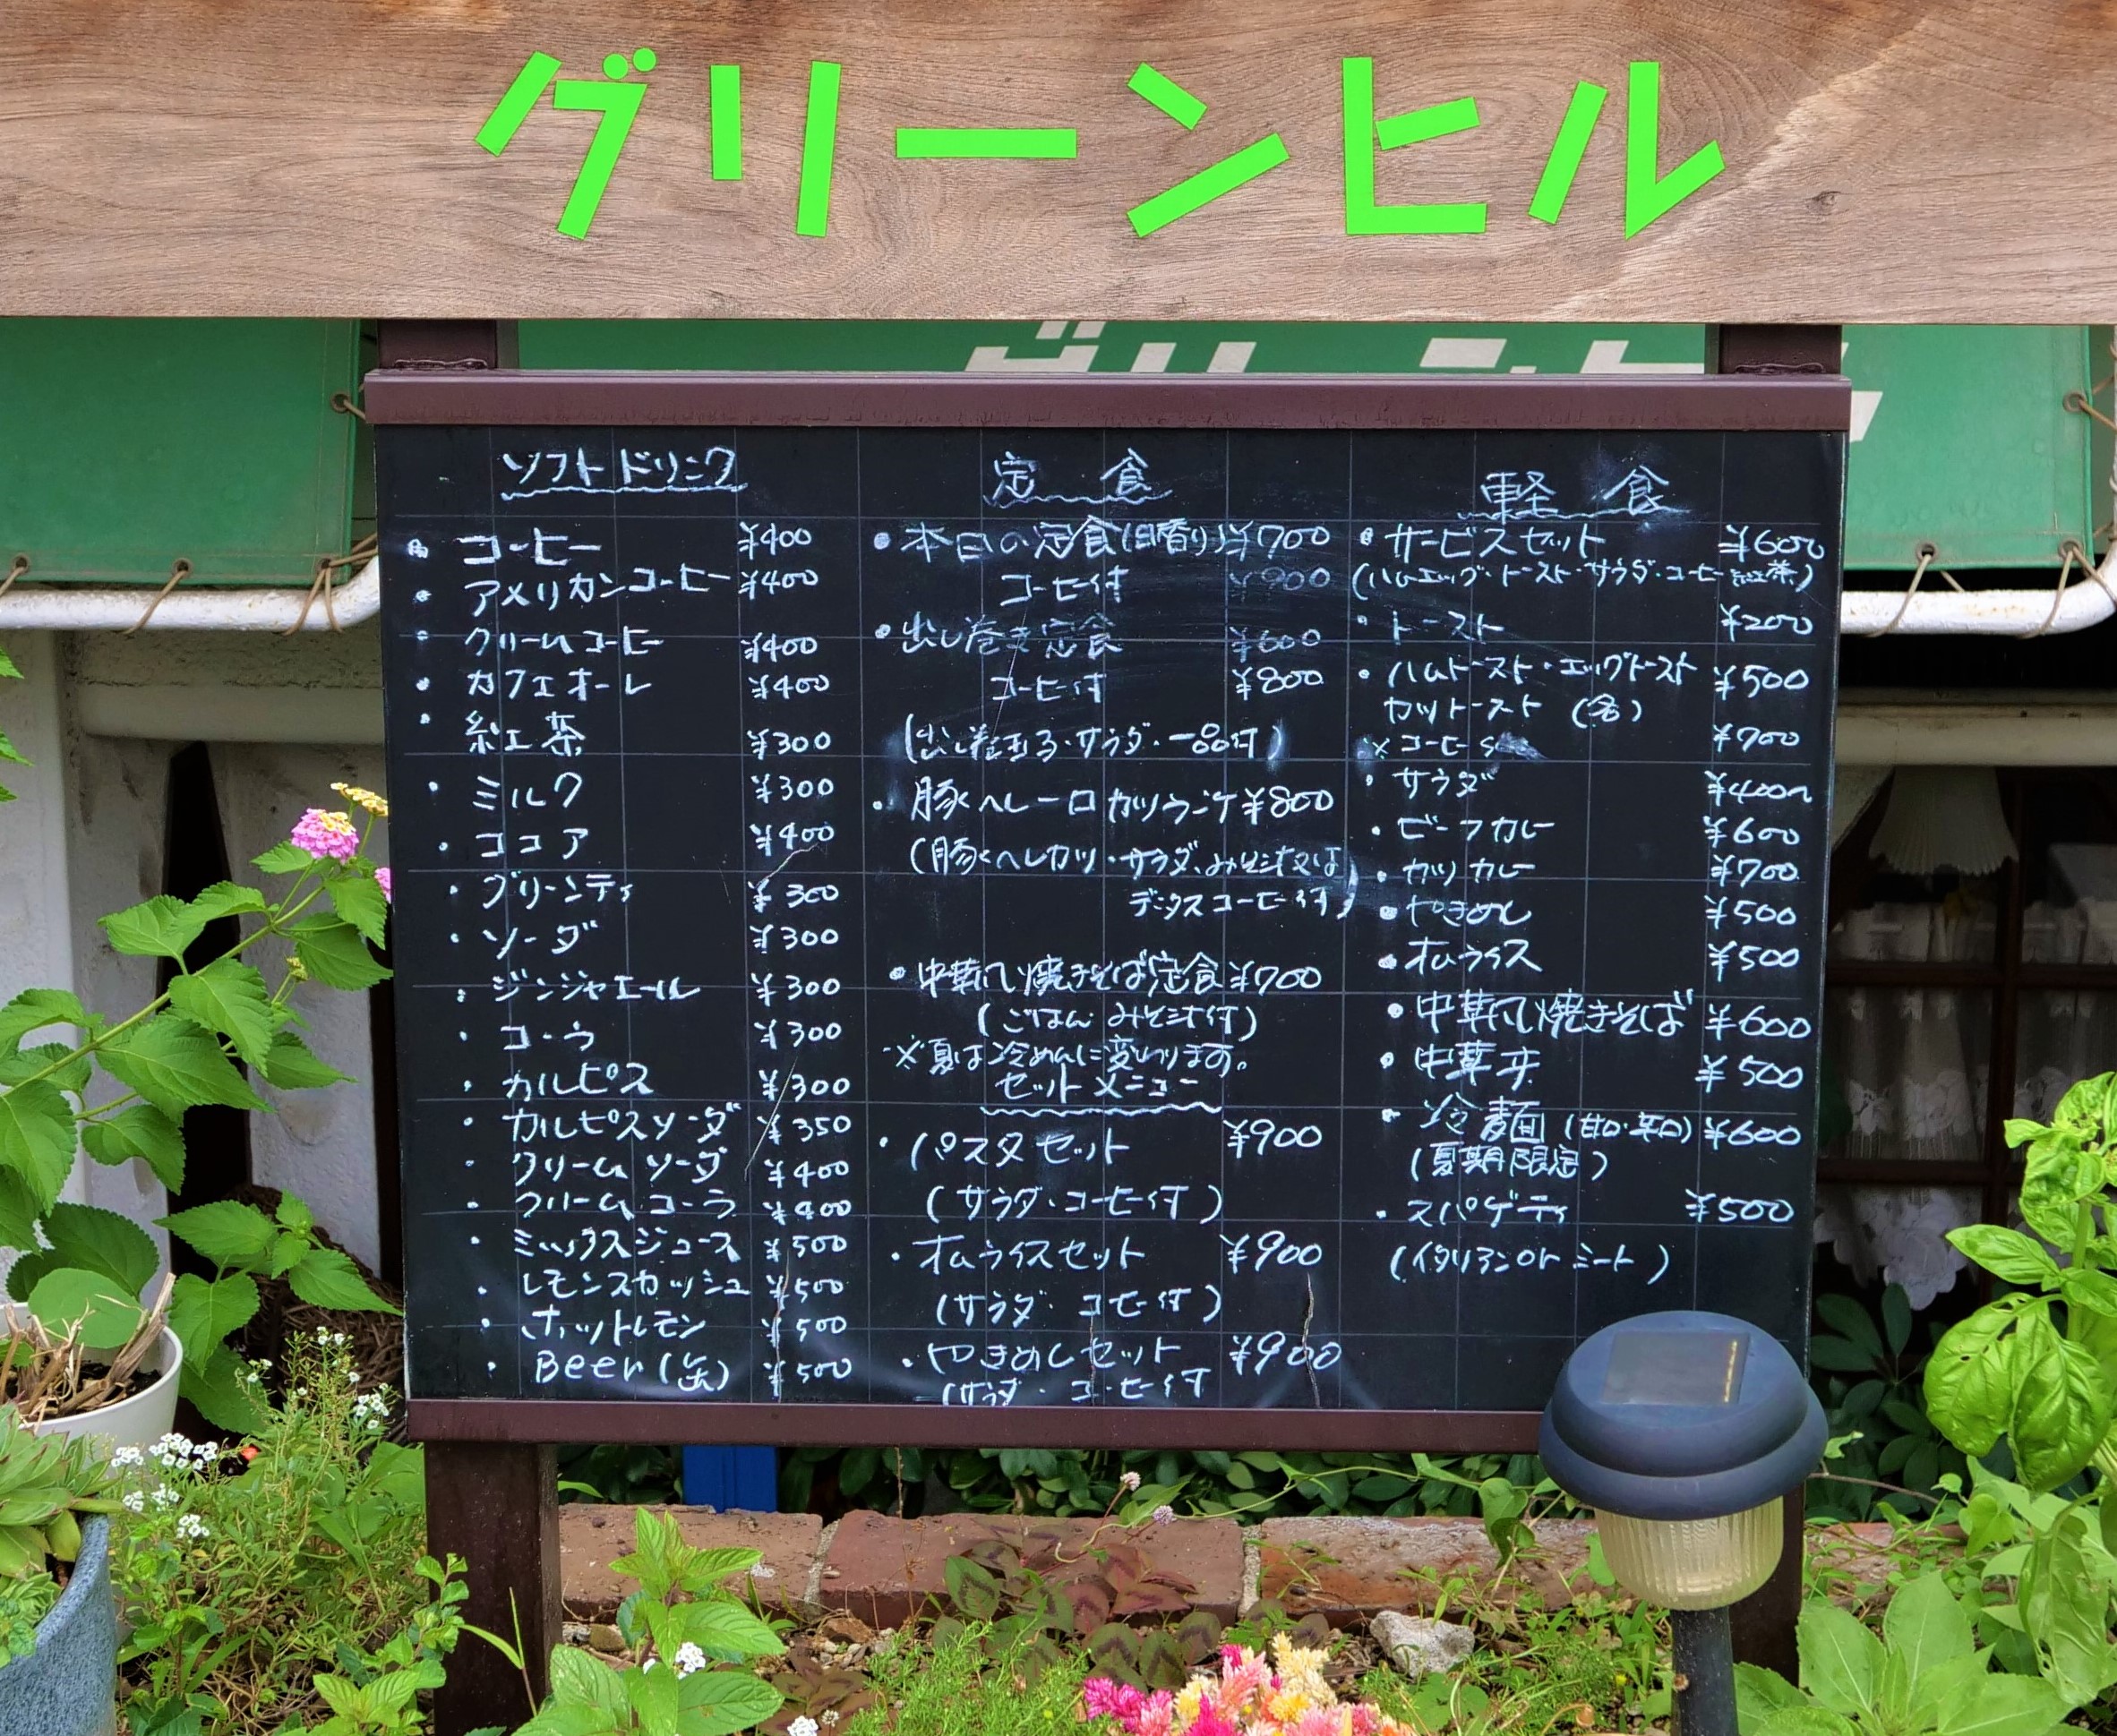 グリーンヒル
ソフトドリンク
コーヒー ¥400
アメリカンコーヒー ¥400
クリームコーヒー ¥400
カフェオーレ ¥400
紅茶 ¥300
・ミルク ¥300
・ココア ¥400
・グリーンティ ¥300
・ソーダ ¥300
・ジンジャエール ¥300
・コーラ ¥300
・カルピス ¥300
・カルピスソーダ ¥350
・クリームソーダ ¥400
・クリームコーラ ¥400
・ミックスジュース ¥500
・レモンスカッシュ ¥500
・ホットレモン ¥500
・Beer(缶) ¥500
定食
・本日の定食(日替り) ¥700
コーヒー付 ¥900
・出し巻き定食 ¥600
コーヒー付 ¥800
(出し巻玉子・サラダ・一品付)
・豚ヘレ一口カツランチ ¥800
(豚ヘレカツ・サラダ、みそ汁又は
デミタスコーヒー付)
・中華風焼きそば定食 ¥700
(ごはん みそ汁付)
※夏は冷めんに変わります。
セットメニュー
・パスタセット ¥900
(サラダ・コーヒー付)
・オムライスセット ¥900
(サラダ・コーヒー付)
・やきめしセット ¥900
(サラダ・コーヒー付
軽食
・サービスセット ¥600
(ハムエッグ・トースト・サラダ・コーヒー 紅茶)
・トースト ¥200
・ハムトースト・エッグトースト ¥500
カツトースト (各)
※コーヒー ¥700
・サラダ ¥400~
・ビーフカレー ¥600
・カツカレー ¥700
・やきめし ¥500
・オムライス ¥500
・中華風焼きそば ¥600
・中華丼 ¥500
・冷麺(甘口・辛口) ¥600
(夏期限定)
・スパゲティ ¥500
(イタリアン or ミート)